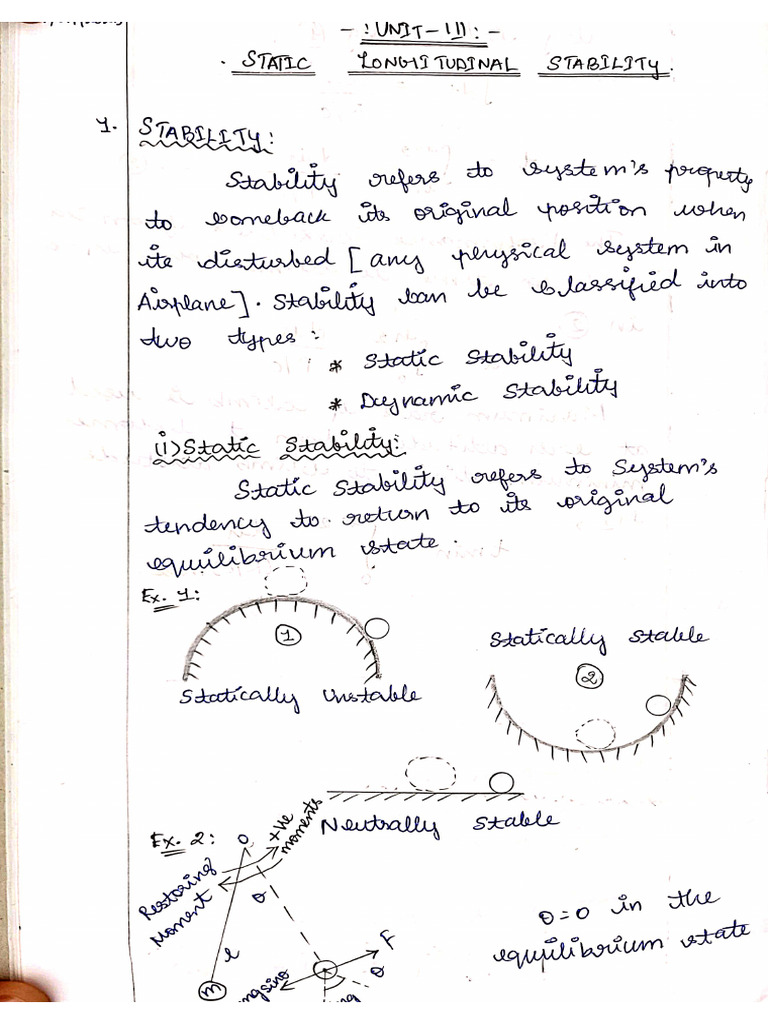 -: UNIT-III :-
STATIC LONGITUDINAL STABILITY.
1. STABILITY:
Stability refers to system's property
to comeback its original position when
its disturbed [any physical system in
Airplane]. Stability can be classified into
two types:
* Static Stability
* Dynamic Stability
(i) Static Stability:
Static Stability refers to System's
tendency to return to its original
equilibrium state.
Ex. 1:
1
Statically Unstable
Statically Stable
2
Neutrally Stable
Ex. 2:
O
+ve moments
Restoring Moment
θ
l
m
F
θ
mgsinθ
mg
θ=0 in the
equilibrium state